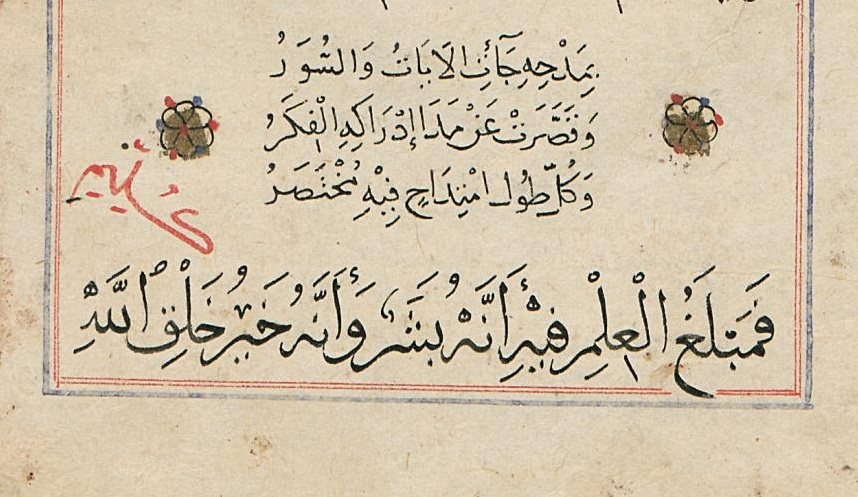 بِمَدْحِهِ جَآءَتِ الْاٰيَاتُ وَالسُّوَرُ
وَقَصَّرَتْ عَنْ مَدَا إِدْرَاكِهِ الْفِكَرُ
وَكُلُّ طُولِ امْتِدَاحٍ فِيْهِ مُخْتَصَرُ
فَمَبْلَغُ الْعِلْمِ فِيْهِ أَنَّهُ بَشَرٌ وَأَنَّهُ خَيْرُ خَلْقِ اللّٰهِ